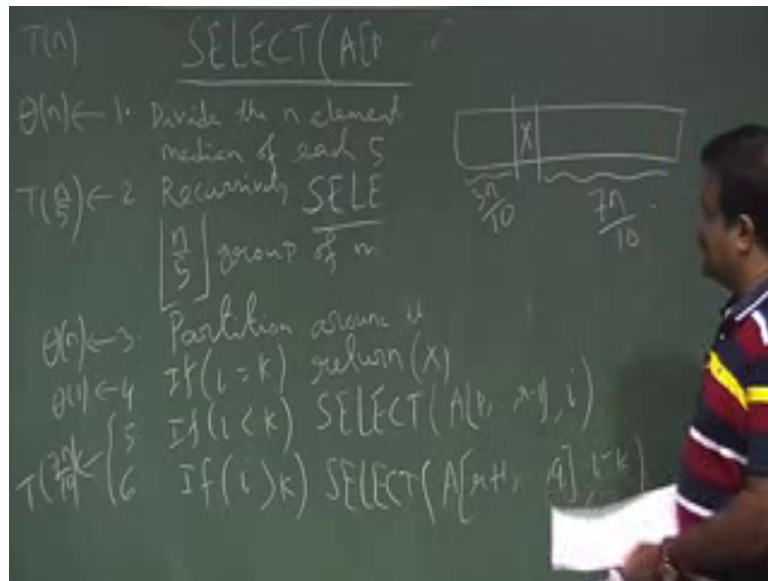 T(n) SELECT(A[p
θ(n) ← 1. Divide the n element
median of each 5
T(n/5) ← 2. Recursively SELE
⌊n/5⌋ group of m
θ(n) ← 3. Partition around
θ(1) ← 4 If (i = k) return (X)
5 If (i < k) SELECT (A[p, r-1], i)
T(7n/10) ← 6 If (i > k) SELECT (A[r+1, q], i-k)
X
3n/10 7n/10